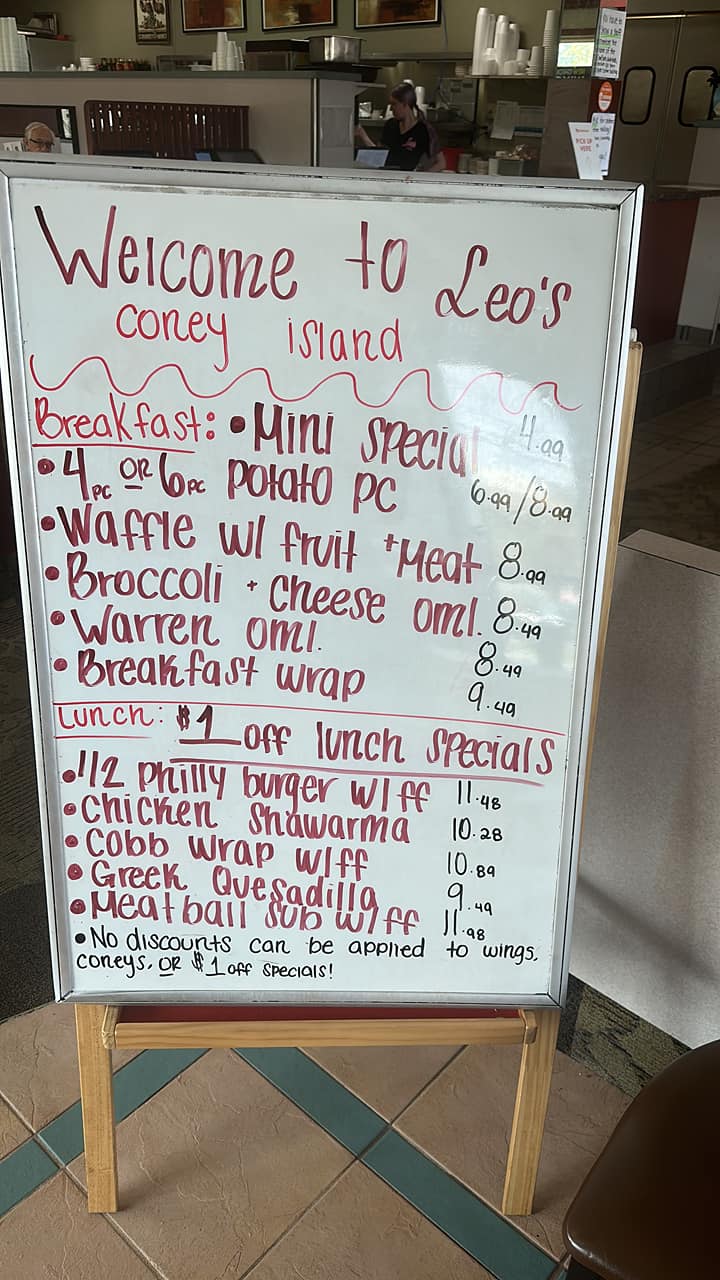 Welcome to Leo's
coney island
Breakfast: • Mini special 4.99
• 4pc OR 6pc potato pc 6.99/8.99
• Waffle w/ fruit + Meat 8.99
• Broccoli + cheese oml. 8.49
• Warren oml. 8.49
• Breakfast wrap 9.49
Lunch: $1 off lunch specials
• 1/2 philly burger w/ff 11.48
• chicken shawarma 10.28
• cobb wrap w/ff 10.89
• Greek Quesadilla 9.49
• Meatball sub w/ff 11.98
• No discounts can be applied to wings,
coneys, OR $1 off specials!